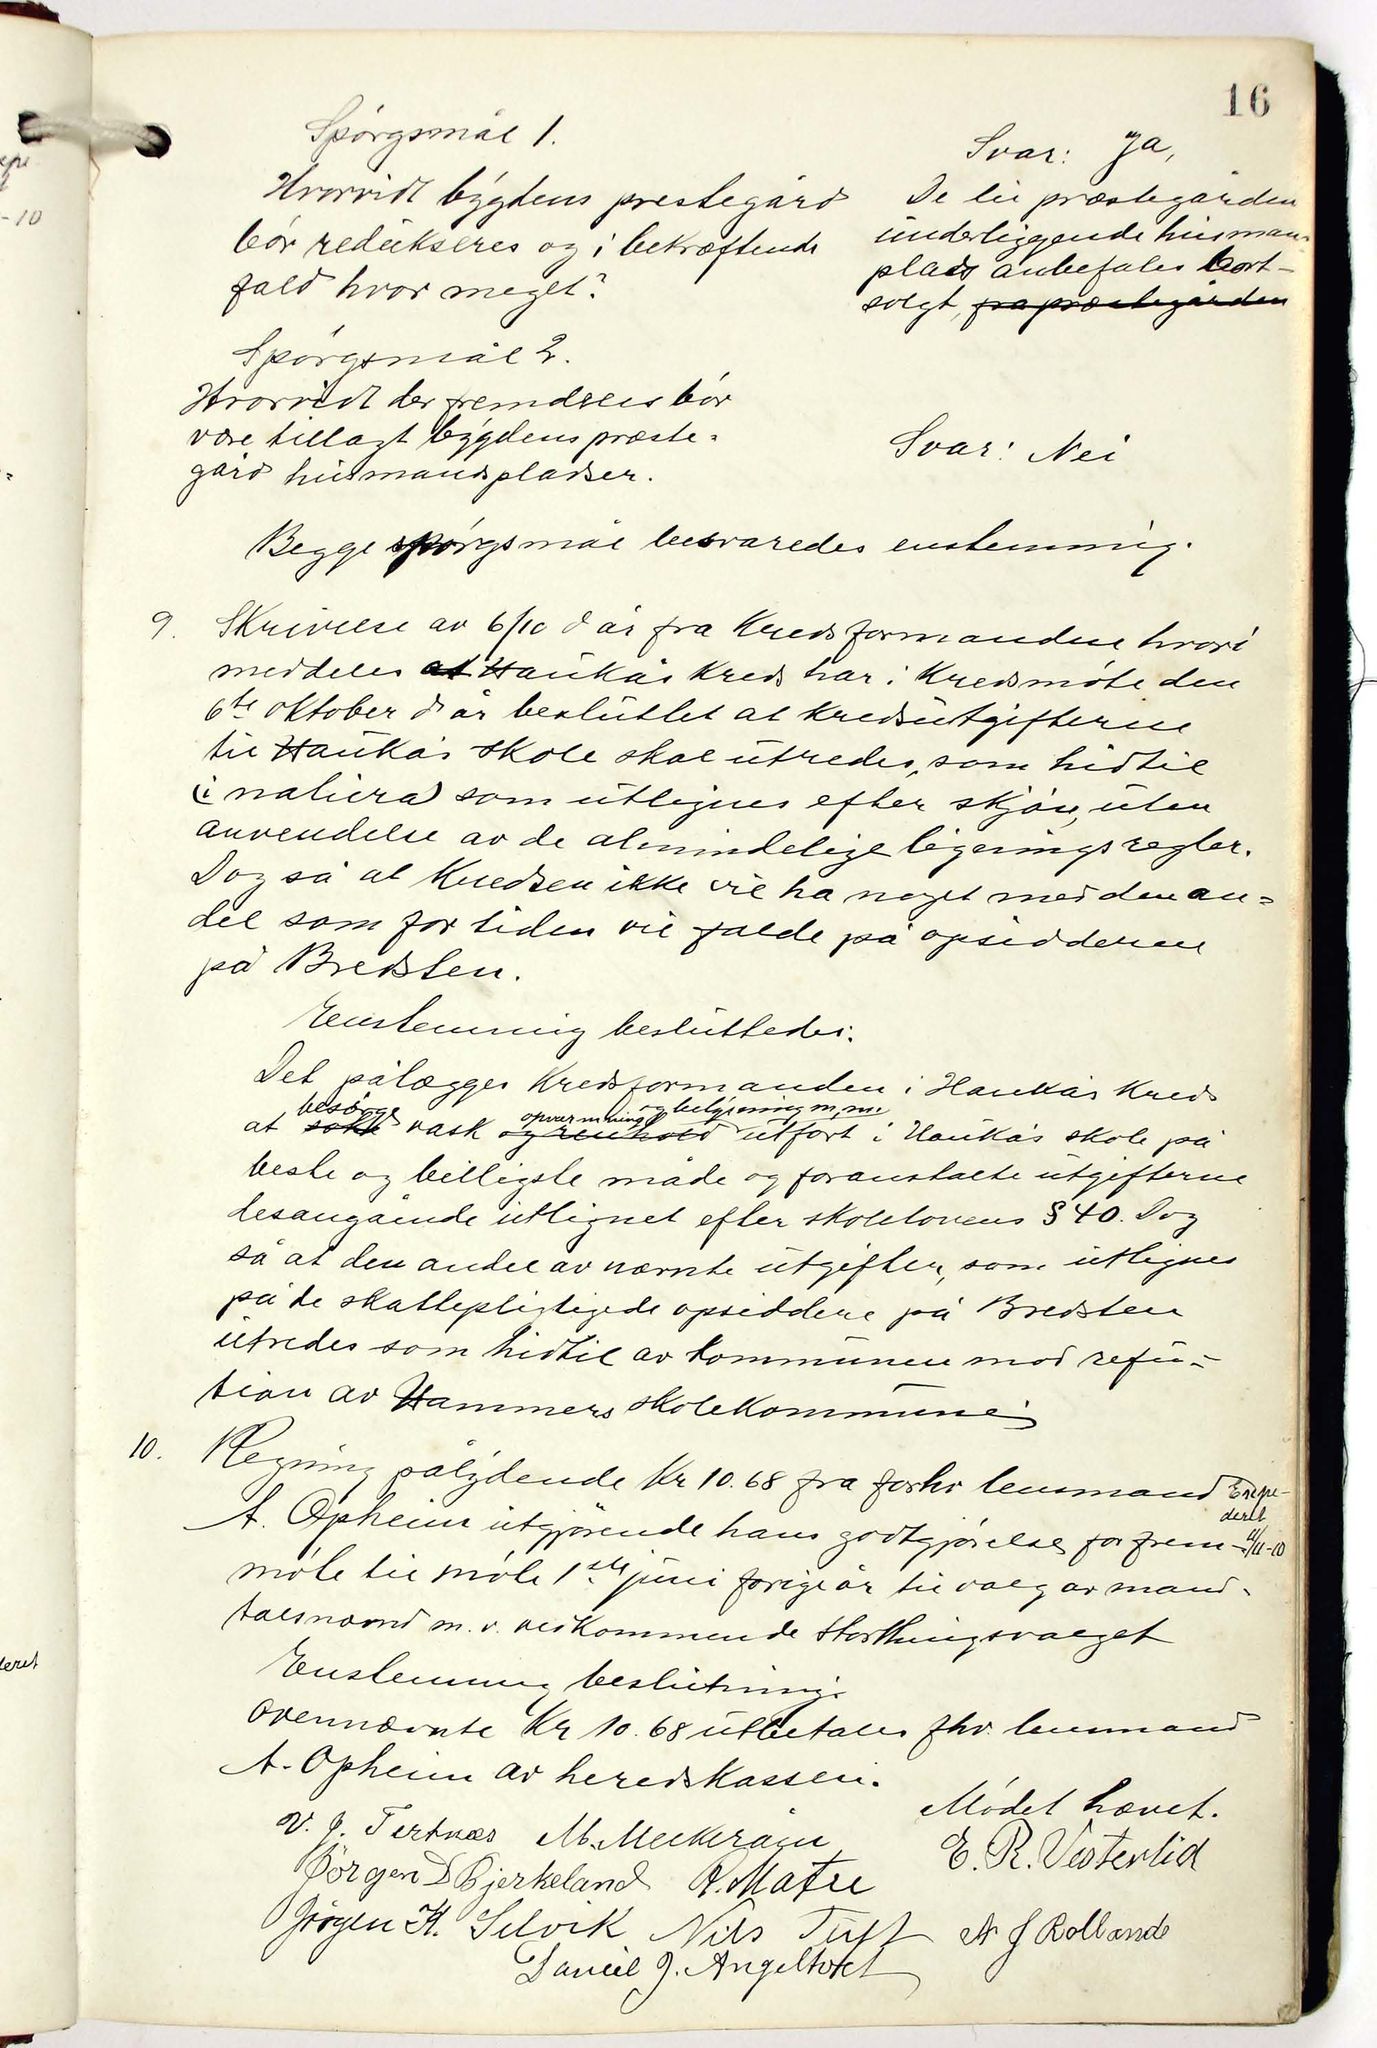 16
Spörgsmål 1.
Hvorvidt bygdens prestegård
bör redükseres og i bekræftende
fald hvor meget?
Svar: Ja,
De til præstegården
ünderliggende hüsmans-
plads anbefales bort-
solgt, fra præstegården
Spörgsmål 2.
Hvorvidt der fremdeles bör
være tillagt bygdens præste-
gård hüsmandspladser.
Svar: Nei
Begge spörgsmål besvaredes enstemmig.
9. Skrivelse av 6/10 d år fra Kredsformanden hvori
meddeles at Haükås Kreds har i Kredsmöte den
6te oktober d år beslüttet at kredsütgifterne
til Haükås skole skal ütredes, som hidtil
(i natüra) som ütlignes efter skjön, üten
anvendelse av de almindelige ligningsregler.
Dog så at Kredsen ikke vil ha noget med den an-
del som for tiden vil falde på opsidderne
på Bredsten.
Enstemmig beslüttedes:
Det pålægges Kredsformanden i Haükås Kreds
besörge opvarmning og belysning m.m.
at søke vask og renhold ütfört i Haükås skole på
beste og billigste måde og foranstalte ütgifterne
desangående ütlignet efter skolelovens § 40. Dog
så at den andel av nævnte ütgifter, som ütlignes
på de skattepligtigede opsiddere på Bredsten
ütredes som hidtil av kommünen mod refü-
tion av Hammers skolekommüne
10. Regning pålydende Kr 10.68 fra forhv lensmand
A. Opheim ütgjörende hans godtgjörelse for frem-
möte til möte 1ste jüni forige år til valg av mand-
talsnævnd m. v. vedkommende storthingsvalget
Expe-
deret
4/11-10
Enstemmig beslütning:
Ovennævnte Kr 10.68 ütbetales fhv. lensmand
A. Opheim av heredskassen.
Mödet hævet.
V. J. Tertnæs M. Mjelkeråen E. R. Vesterlid
Jörgen D Bjerkeland R. Matre
Jörgen H. Selvik Nils Tuft N J Rollande
Daniel J. Angeltvet